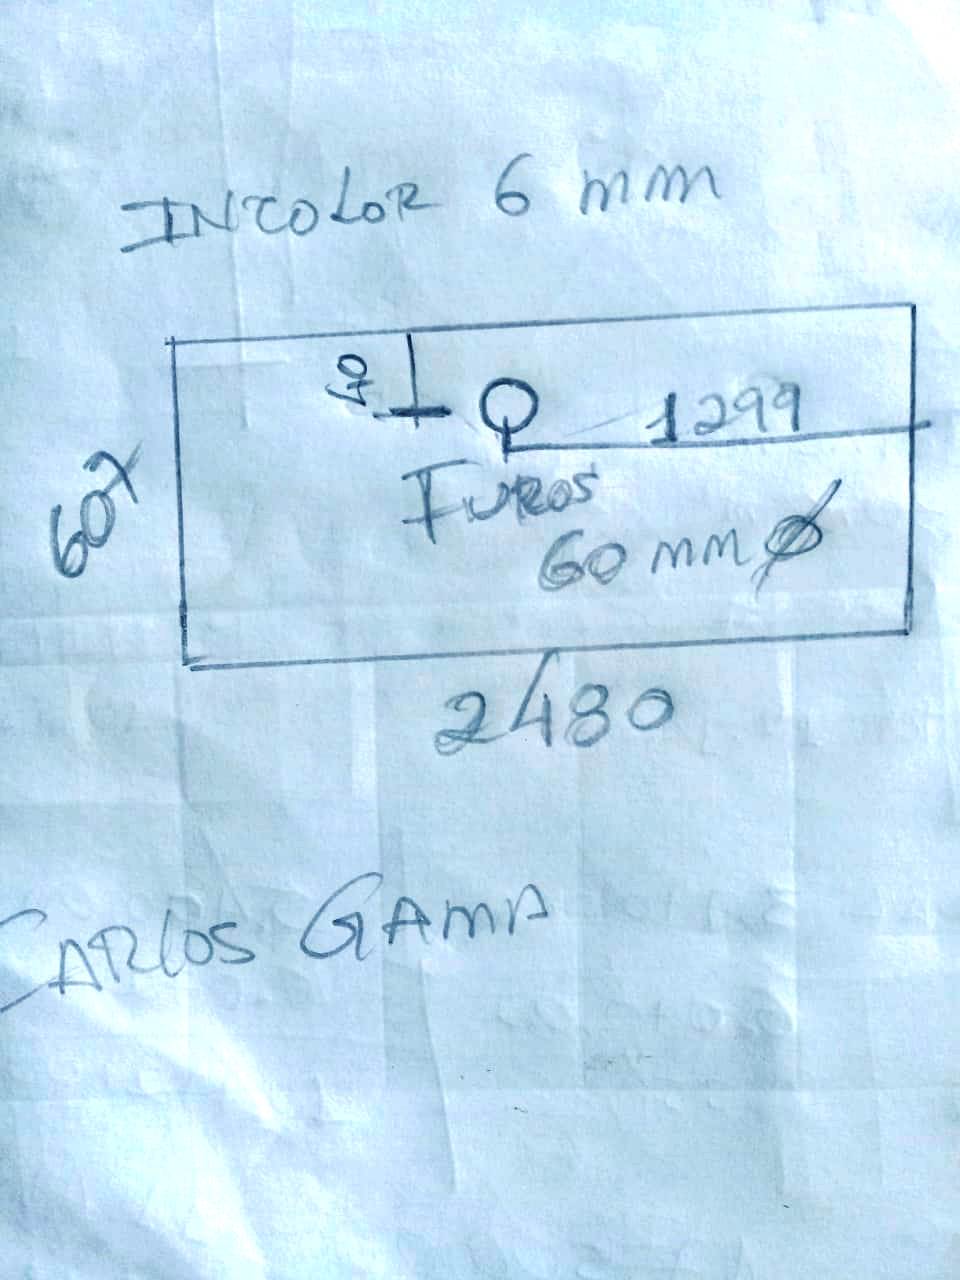 INCOLOR 6 mm
1299
FUROS
60 mm Ø
607
2480
CARLOS GAMA